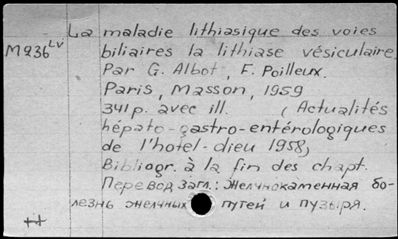 La maladie lithiasique des voies
M236 LV biliaires la lithiase vésiculaire
Par G. Albot, F. Poilleux.
Paris, Masson, 1959
341 p. avec ill. (Actualités
hépato-gastro-entérologiques
de l'hotel-dieu 1958)
Bibliogr. à la fin des chapt.
Перевод загл.: Желчнокаменная бо-
лезнь желчных путей и пузыря.